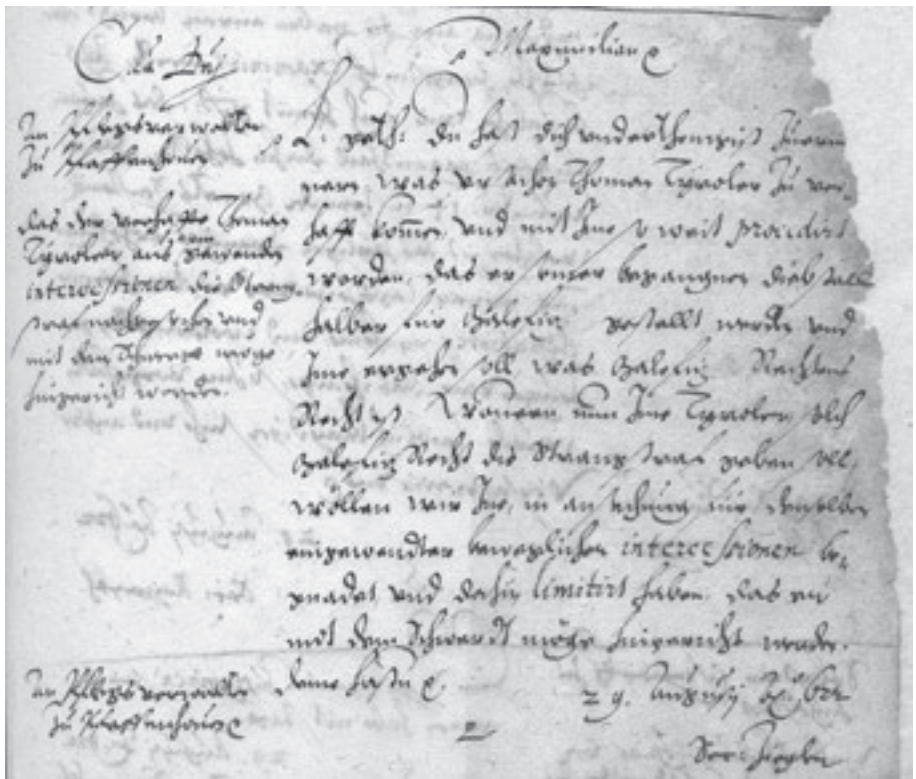 Maximilian
An Pflegsverwalter
zu Pfaffenhoven
Das der verhaffte Thoman
Tyroler aus
intercessionen die Strang
straf nachgesehen und
mit dem Schwerdt möge
hingericht werden.
L: geth: Du hast dich underthenigist
was ursachen Thoman Tyroler zu ver
hafft kommen, und mit Ime so weit procedirt
worden, das er seiner begangnen diebstall
halber für Malefiz gestellt werden und
Ime ergehen soll, was Malefiz Rechtens
Recht ist. Wouern nun Ime Tyroler, das
Malefiz Recht die Strangstraf geben soll,
wöllen wir Ine, in ansehung für denselben
eingewendter beweglichen intercessionen be
gnadet, und dahin limitirt haben, das er
mit dem Schwerdt möge hingericht werden.
An Pflegsverwalter
zu Pfaffenhoven
29. Augusti